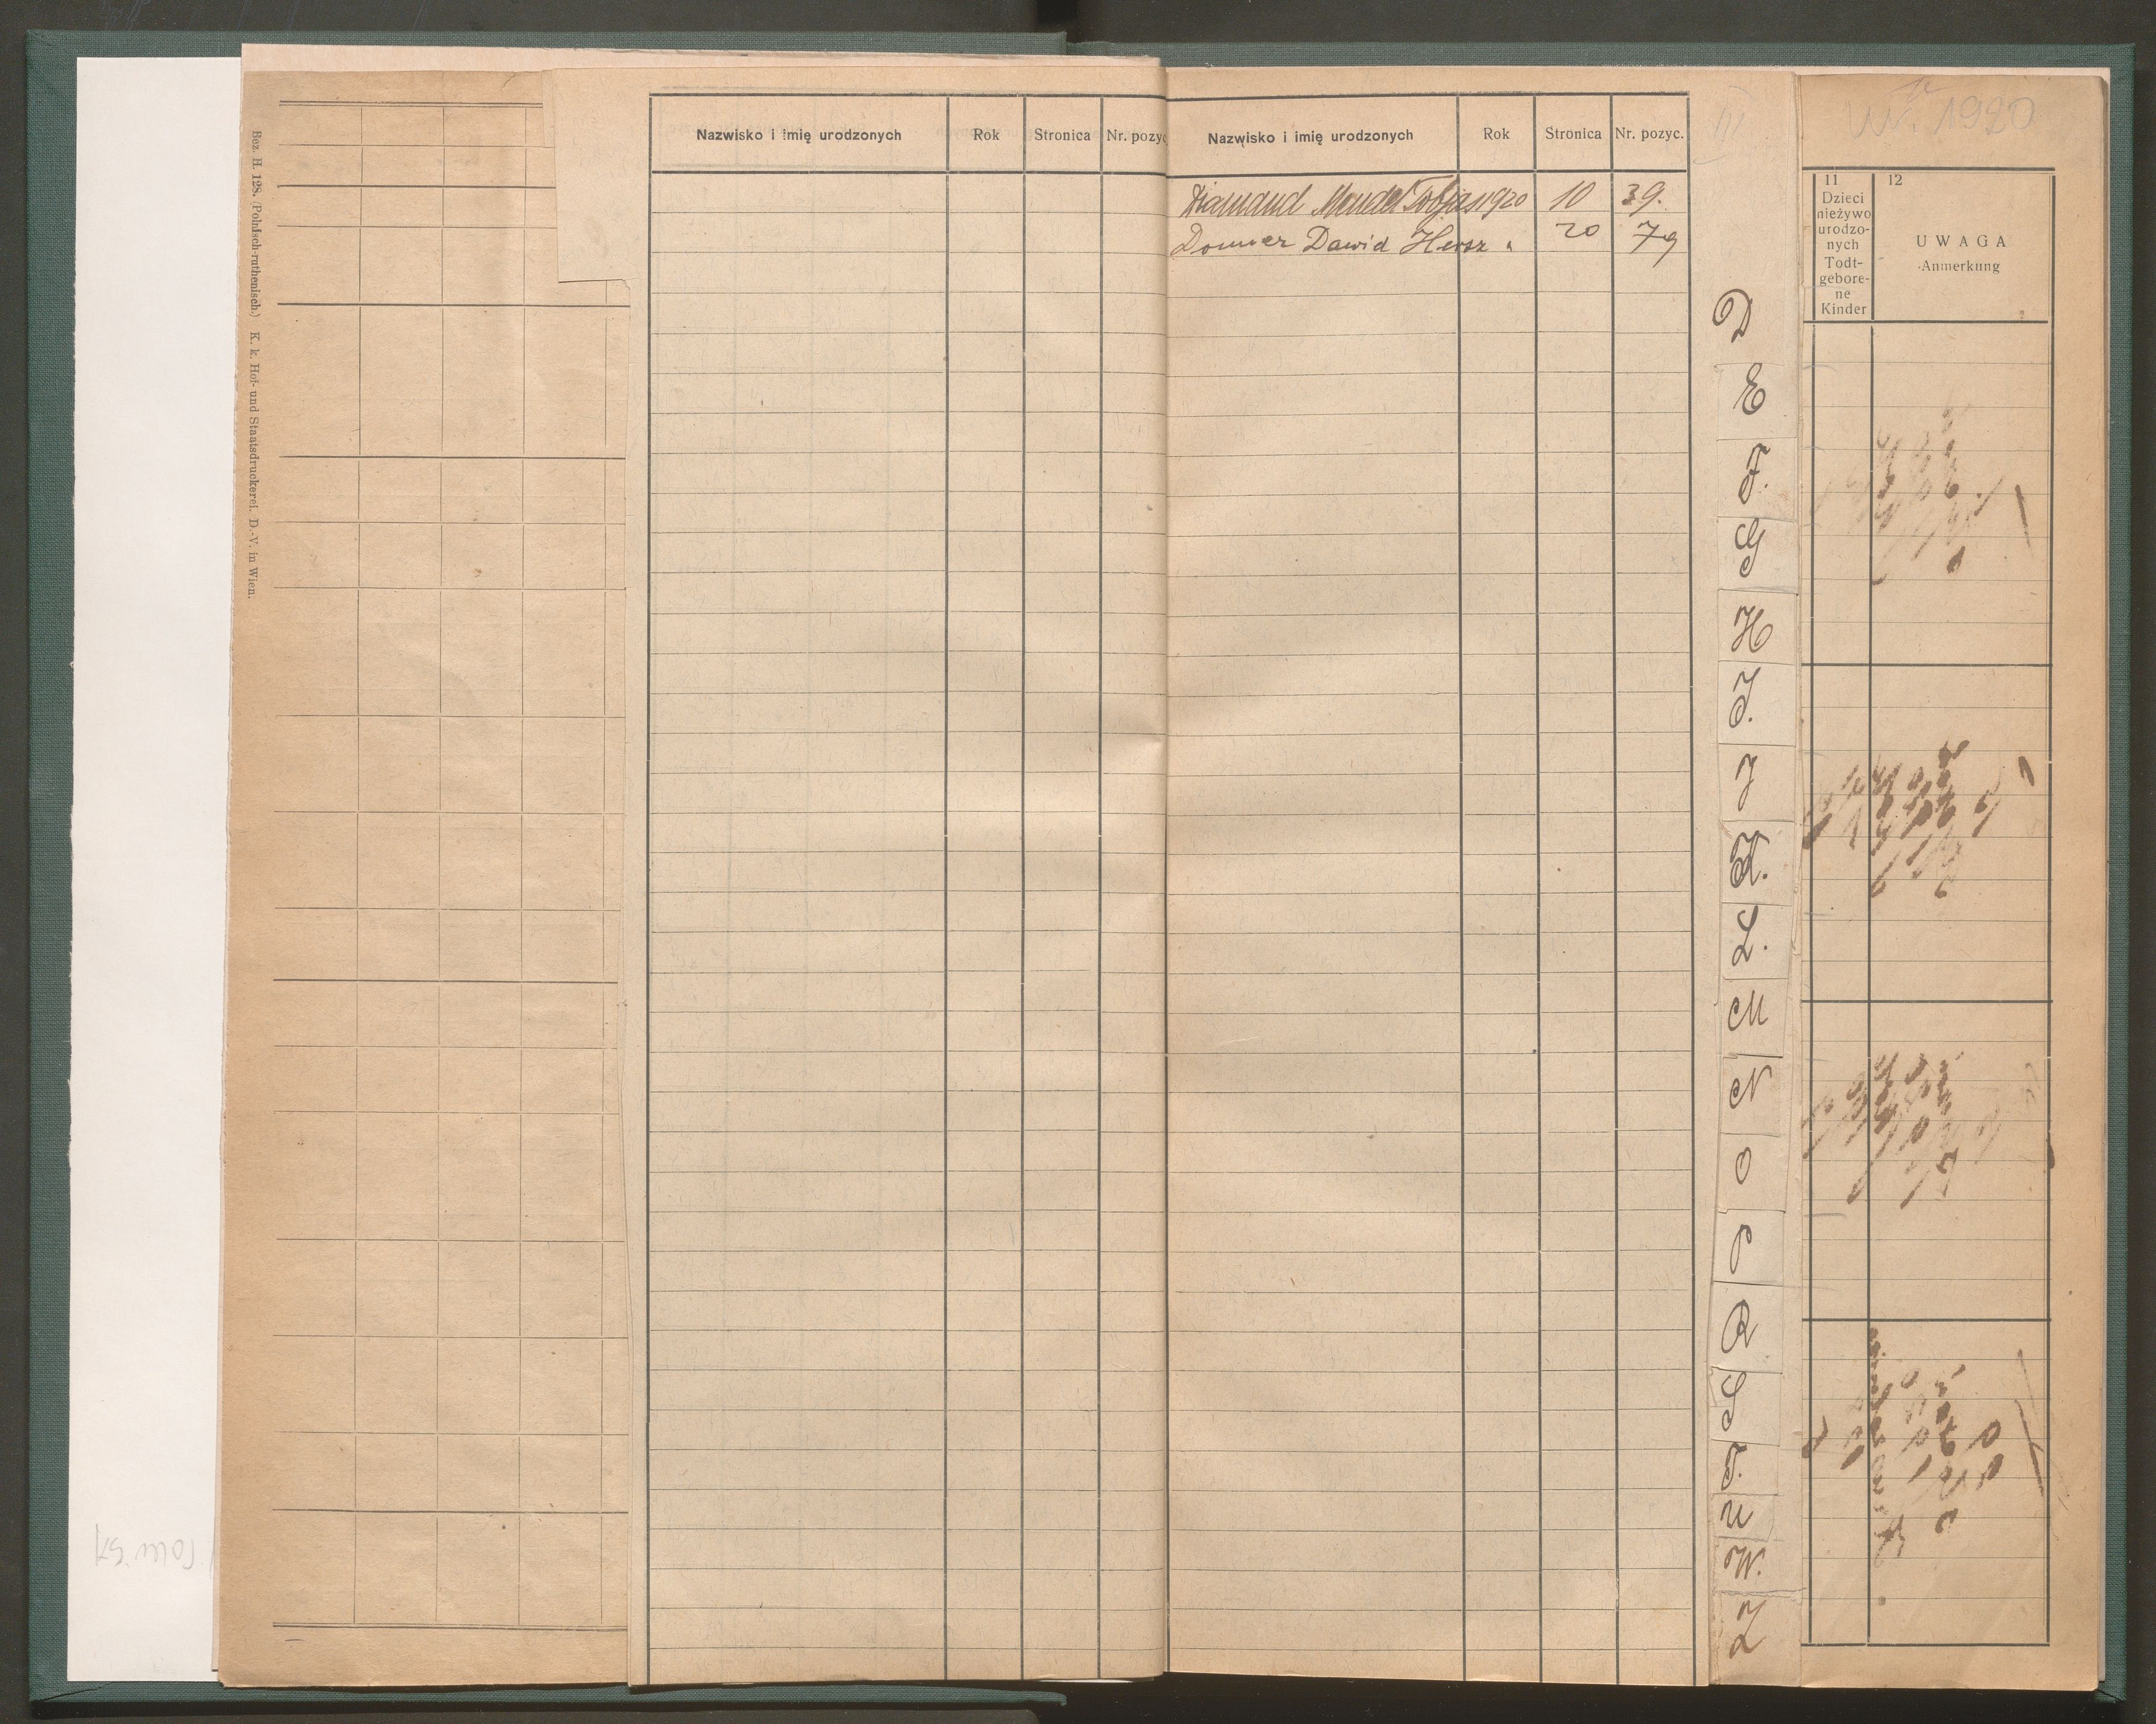 Bez. H. 128. (Polnisch-ruthenisch.) K. k. Hof- und Staatsdruckerei. D.-V. in Wien.
Nazwisko i imię urodzonych Rok Stronica Nr. pozyc
Nazwisko i imię urodzonych Rok Stronica Nr. pozyc.
Diamand Mendel Tobjasz 1920 10 39.
Donner Dawid Hersz " 20 79
III
D
E
F.
G
H
I.
J
K.
L.
M
N
O
P
R
S
T.
U
W.
Z
1920
11
Dzieci
nieżywo
urodzo-
nych
Todt-
gebore-
ne
Kinder
12
UWAGA
Anmerkung